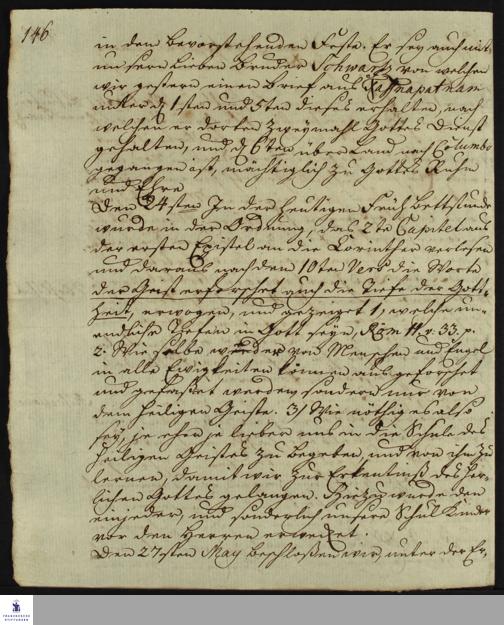 146
in dem bevorstehenden Feste. Er sey auch mit
unserm Lieben Bruder Schwartz von welchen
wir gestern einen Brief aus Jafnapatnam
unter d. 1sten und 5ten dieses erhalten, nach
welchen er dorten zweymahl Gottes Dienst
gehalten, und d. 6ten über Land nach Columbo
gegangen ist, mächtiglich zu Gottes Ruhm
und Ehre
Den 24sten In der heutigen Frühbettstunde
wurde in der Ordnung, das 2te Capitel aus
der ersten Epistel an die Corinther verlesen
und daraus nach dem 10ten Vers die Worte
der Geist erforschet auch die Tiefe der Gott-
heit, erwogen, und gezeiget 1, welche un-
endliche Tiefen in Gott seyn, Rom 11, v. 33. p.
2. Wie selbe weder von Menschen und Engel
in alle Ewigkeiten können ausgeforschet
und gefaßet werden, sondern nur von
dem Heiligen Geiste. 3) Wie nöthig es also
sey, je eher je lieber uns in die Schule des
Heiligen Geistes zu begeben, und von ihm zu
lernen, damit wir zur Erkentniß des herr-
lichen Gottes gelangen. Hiezu wurde denn
einjeder, und sonderlich unsere Schul Kinder
vor den Herren erwecket.
Den 27sten May beschloßen wir, unter der Er,
FRANCKESCHE
STIFTUNGEN